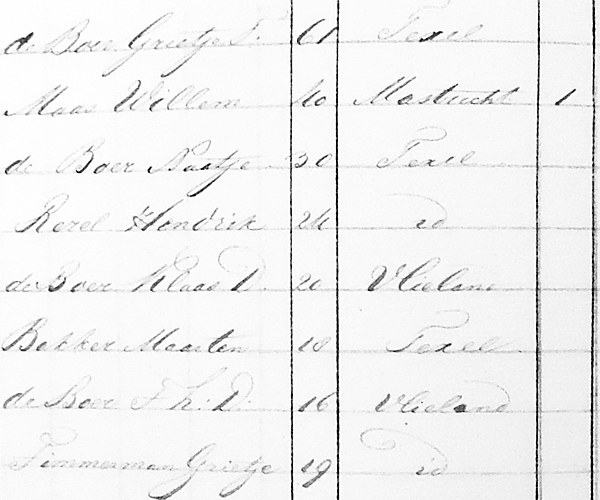 de Boer Grietje T. 61 Texel
Maas Willem 40 Mastricht 1
de Boer Naatje 30 Texel
Rezel Hendrik 24 id
de Boer Klaas D. 20 Vlieland
Bakker Maarten 18 Texel
de Boer F. h. D. 16 Vlieland
Timmerman Grietje 19 id